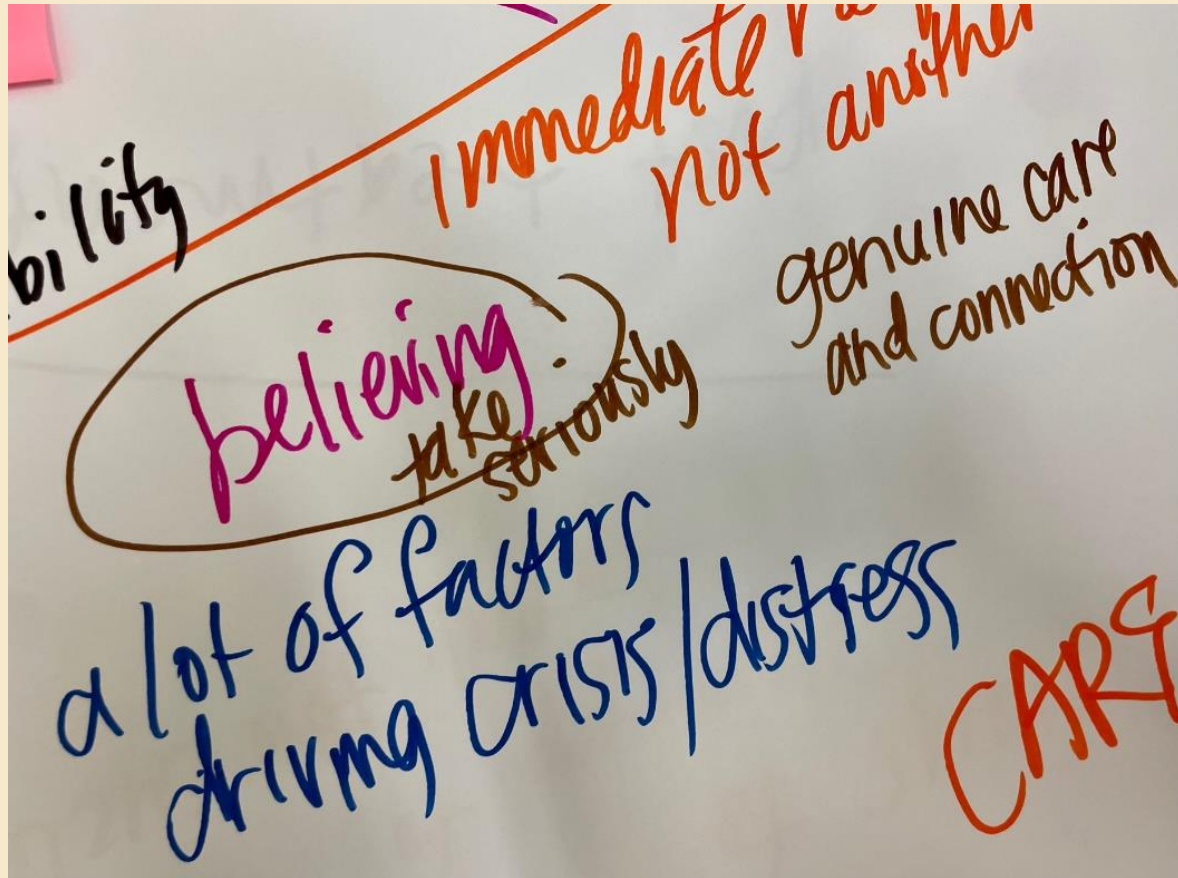 immediate
not another
bility
genuine care
and connection
believing
take
seriously
a lot of factors
driving crisis/distress
CARE